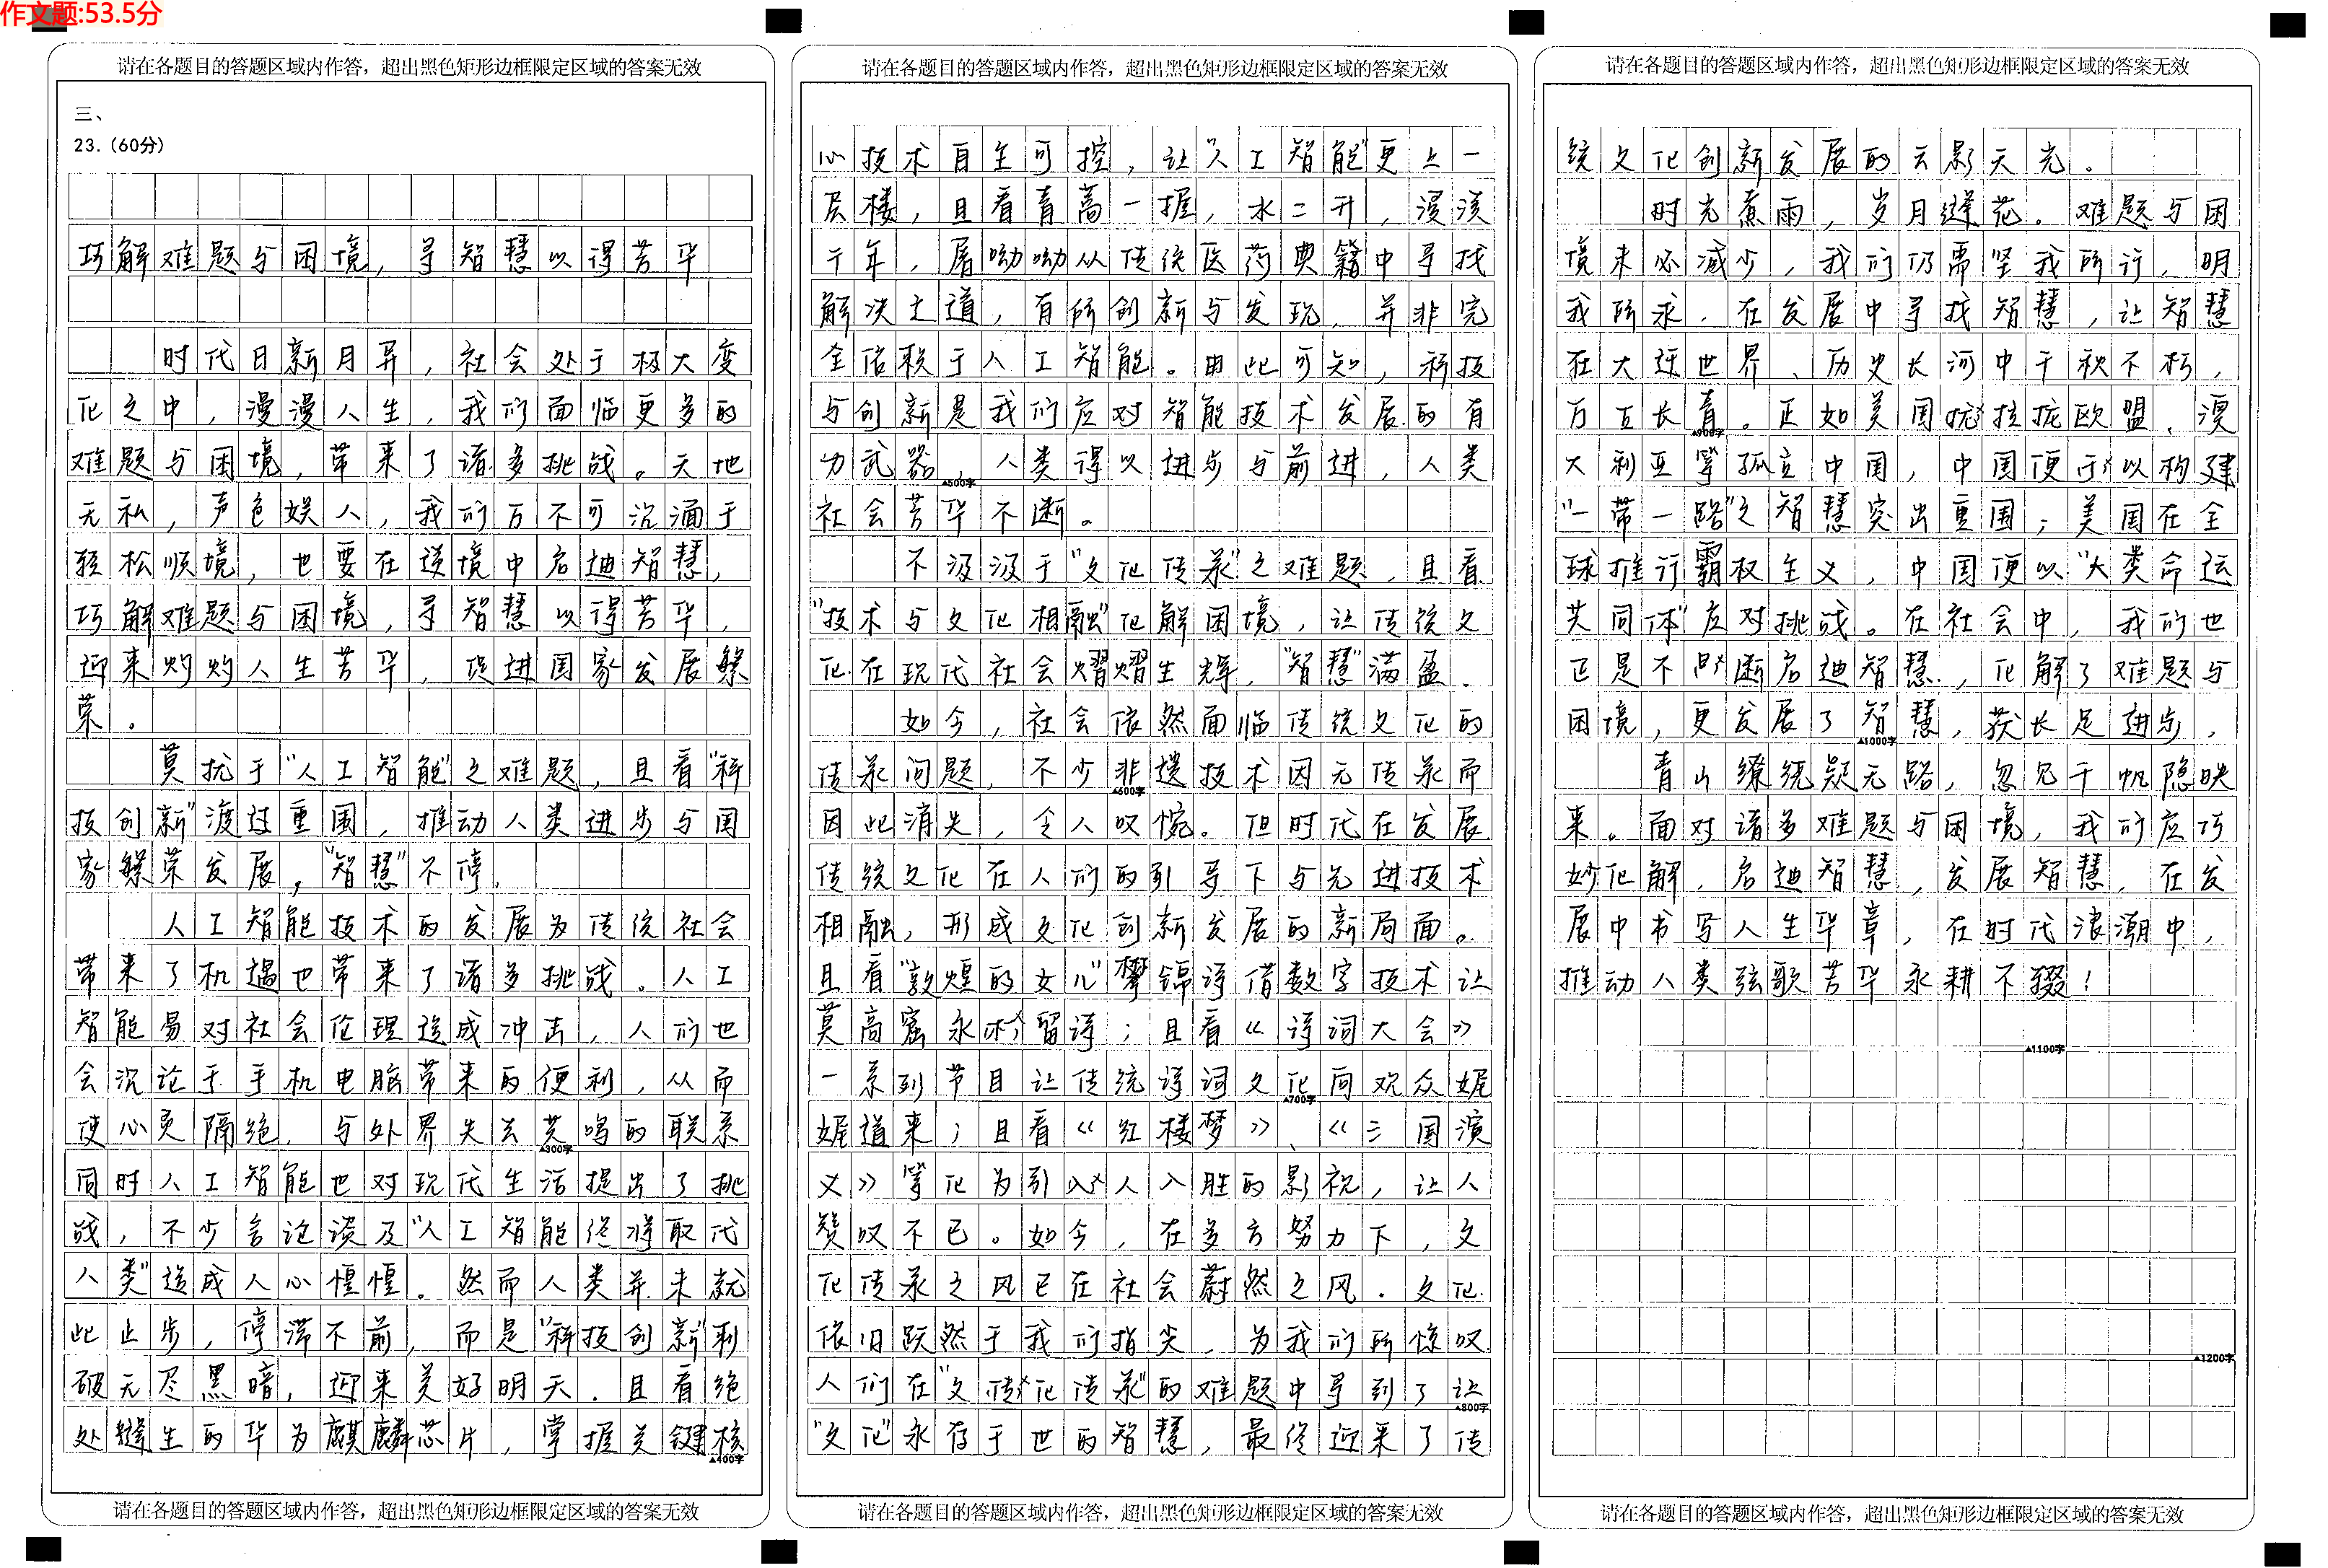 作文题:53.5分
请在各题目的答题区域内作答，超出黑色矩形边框限定区域的答案无效
三、
23.（60分）
巧解难题与困境，寻智慧以得芳华
时代日新月异，社会处于极大变
化之中，漫漫人生，我们面临更多的
难题与困境，带来了诸多挑战。天地
无私，声色娱人，我们万不可沉湎于
轻松顺境，也要在逆境中启迪智慧，
巧解难题与困境，寻智慧以得芳华，
迎来灼灼人生芳华，促进国家发展繁
荣。
莫扰于“人工智能”之难题，且看“科
技创新”渡过重围，推动人类进步与国
家繁荣发展，“智慧”不停。
人工智能技术的发展为传统社会
带来了机遇也带来了诸多挑战。人工
智能易对社会伦理造成冲击，人们也
会沉沦于手机电脑带来的便利，从而
使心灵隔绝，与外界失去共鸣的联系
▲300字
同时人工智能也对现代生活提出了挑
战，不少言论谈及“人工智能终将取代
人类”造成人心惶惶。然而人类并未就
此止步，停滞不前，而是“科技创新”刺
破无尽黑暗，迎来美好明天。且看绝
处缝生的华为麒麟芯片，掌握关键核
▲400字
请在各题目的答题区域内作答，超出黑色矩形边框限定区域的答案无效
请在各题目的答题区域内作答，超出黑色矩形边框限定区域的答案无效
心技术自主可控，让“人工智能”更上一
层楼，且看青蒿一握，水二升，浸渍
千年，屠呦呦从传统医药典籍中寻找
解决之道，有所创新与发现，并非完
全信赖于人工智能。由此可知，科技
与创新是我们应对智能技术发展的有
力武器，人类得以进步与前进，人类
▲500字
社会芳华不断。
不汲汲于“文化传承”之难题，且看
“技术与文化相融”化解困境，让传统文
化在现代社会熠熠生辉，“智慧”满盈。
如今，社会依然面临传统文化的
传承问题，不少非遗技术因无传承而
▲600字
因此消失，令人叹惋。但时代在发展
传统文化在人们的引导下与先进技术
相融，形成文化创新发展的新局面。
且看“敦煌的女儿”樊锦诗借数字技术让
莫高窟永留诗；且看《诗词大会》
一系列节目让传统诗词文化向观众娓
▲700字
娓道来；且看《红楼梦》、《三国演
义》等化为引人入胜的影视，让人
赞叹不已。如今，在多方努力下，文
化传承之风已在社会蔚然之风。文化
依旧跃然于我们指尖，为我们所惊叹
人们在“文化传承”的难题中寻到了让
▲800字
“文化”永存于世的智慧，最终迎来了传
请在各题目的答题区域内作答，超出黑色矩形边框限定区域的答案无效
请在各题目的答题区域内作答，超出黑色矩形边框限定区域的答案无效
统文化创新发展的云影天光。
时光煮雨，岁月缝花。难题与困
境未必减少，我们仍需坚我所行，明
我所求，在发展中寻找智慧，让智慧
在大千世界、历史长河中千秋不朽，
万古长青。正如美国拉拢欧盟、澳
▲900字
大利亚等孤立中国，中国便以构建
“一带一路”之智慧突出重围；美国在全
球推行霸权主义，中国便以“人类命运
共同体”应对挑战。在社会中，我们也
正是不断启迪智慧，化解了难题与
困境，更发展了智慧，获长足进步，
▲1000字
青山缭绕疑无路，忽见千帆隐映
来。面对诸多难题与困境，我们应巧
妙化解，启迪智慧，发展智慧，在发
展中书写人生华章，在时代浪潮中，
推动人类弦歌芳华永耕不辍！
▲1100字
▲1200字
请在各题目的答题区域内作答，超出黑色矩形边框限定区域的答案无效